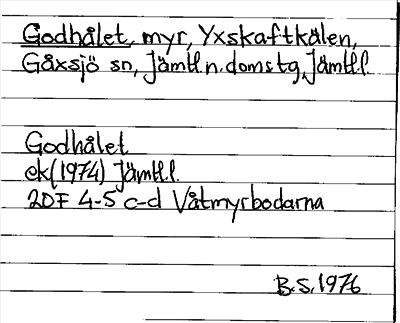 Godhålet, myr, Yxskaftkälen,
Gåxsjö sn, Jämtl.n.domstg, Jämtl.l.
Godhålet
ek(1974) Jämtl.l.
20F 4-5 c-d Våtmyrbodarna
B.S. 1976